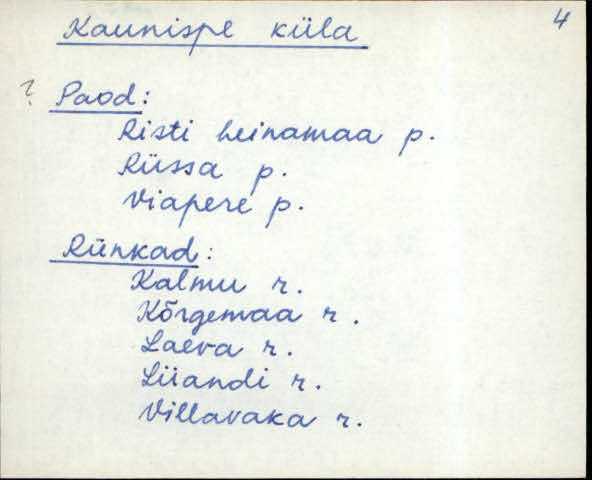 4
Kaunispe küla
? Paod:
Risti heinamaa p.
Rüssa p.
Viapere p.
Rünkad:
Kalmu r.
Kõrgemaa r.
Laeva r.
Lüandi r.
Villavaka r.